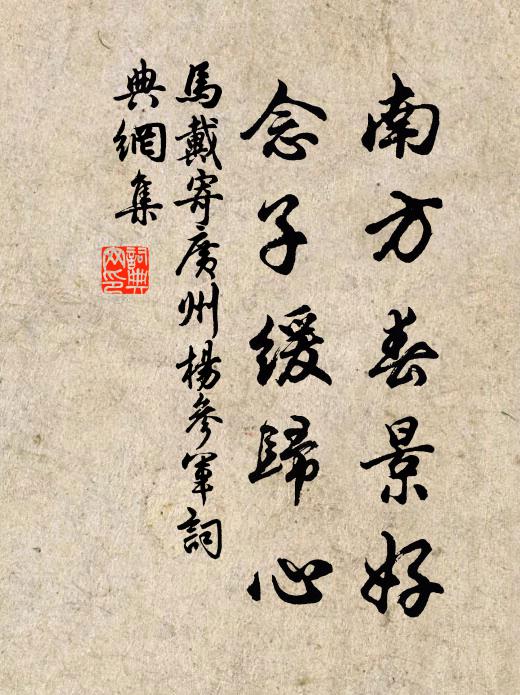 南方春景好
念子緩歸心
馬戴寄廣州楊參軍詞
典網集
詞典